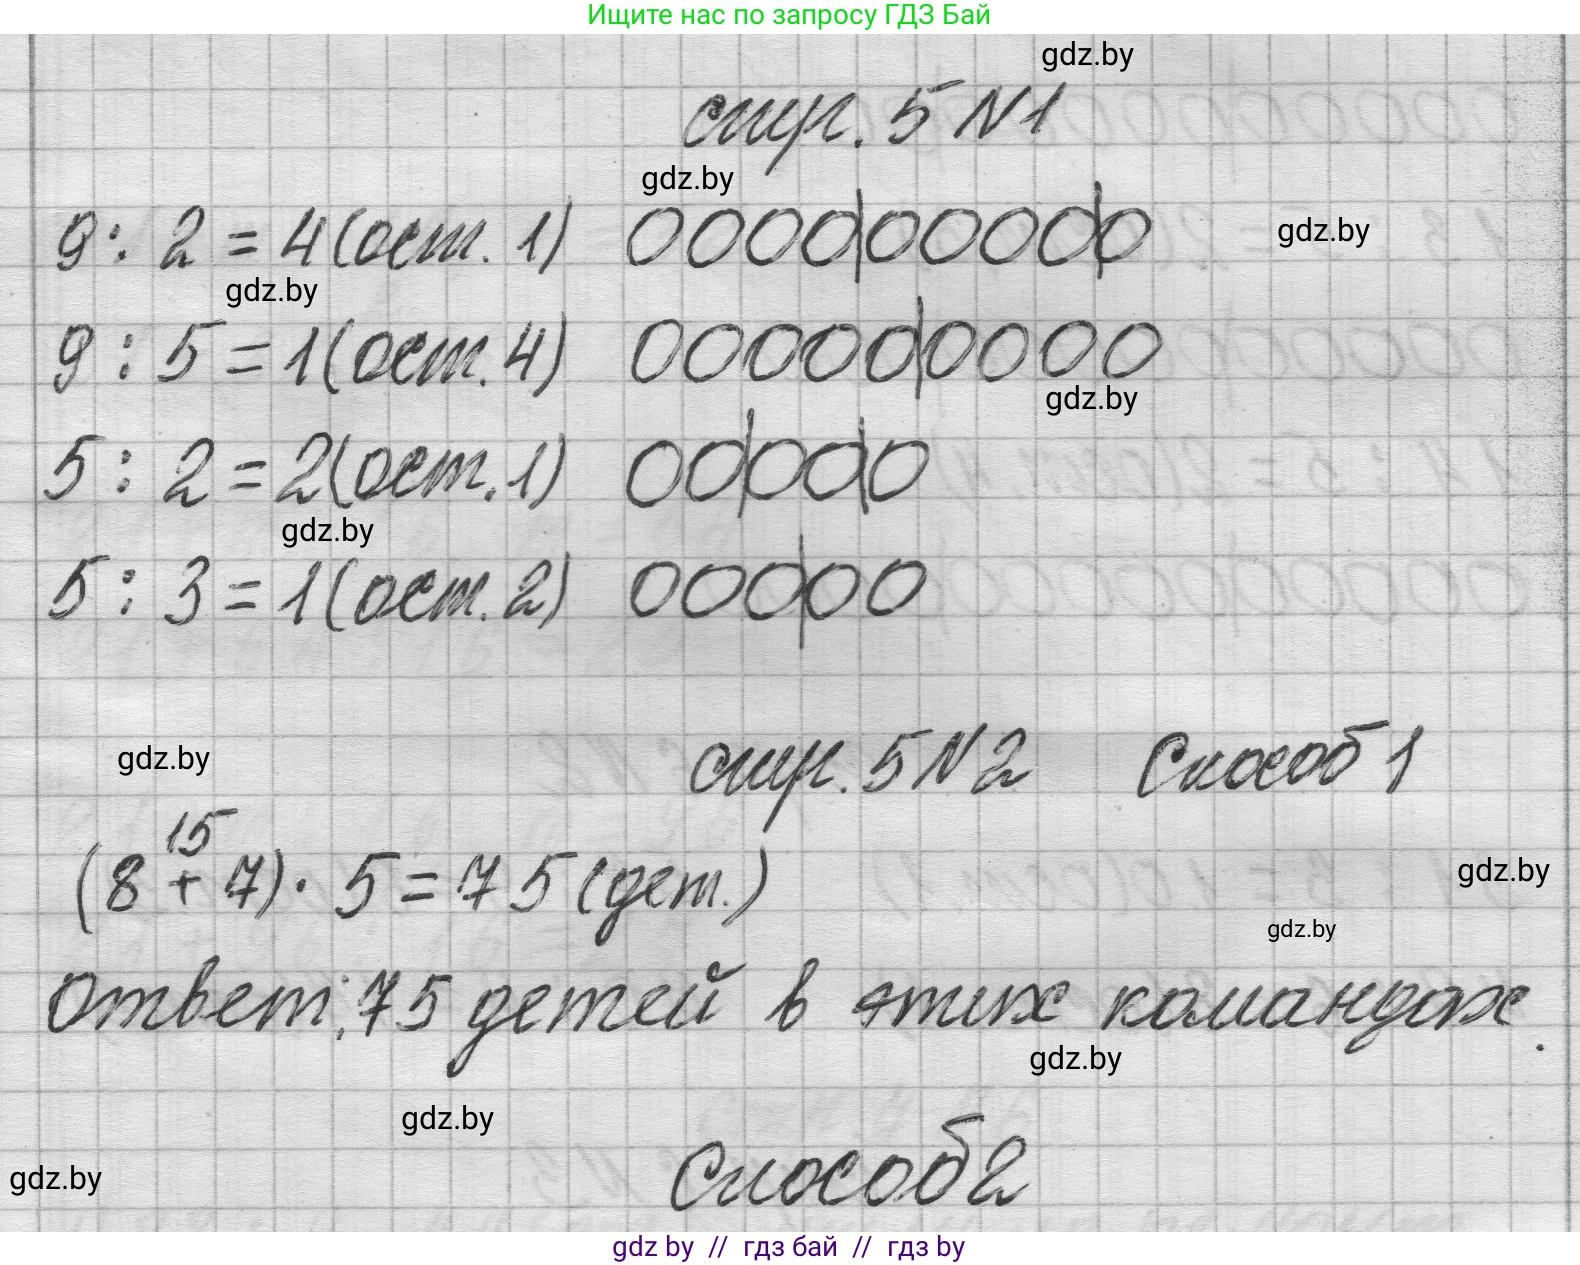 Ищите нас по запросу ГДЗ Бай
gdz.by
стр. 5 N1
gdz.by
9 : 2 = 4 (ост. 1) 0000|0000|0
gdz.by
gdz.by
9 : 5 = 1 (ост. 4) 00000|0000
gdz.by
5 : 2 = 2 (ост. 1) 00|00|0
gdz.by
5 : 3 = 1 (ост. 2) 000|00
стр. 5 N2 Способ 1
gdz.by
15
(8 + 7) · 5 = 75 (дет.)
gdz.by
gdz.by
Ответ: 75 детей в этих командах.
gdz.by
gdz.by
Способ 2
gdz.by
gdz by // гдз бай // гдз by